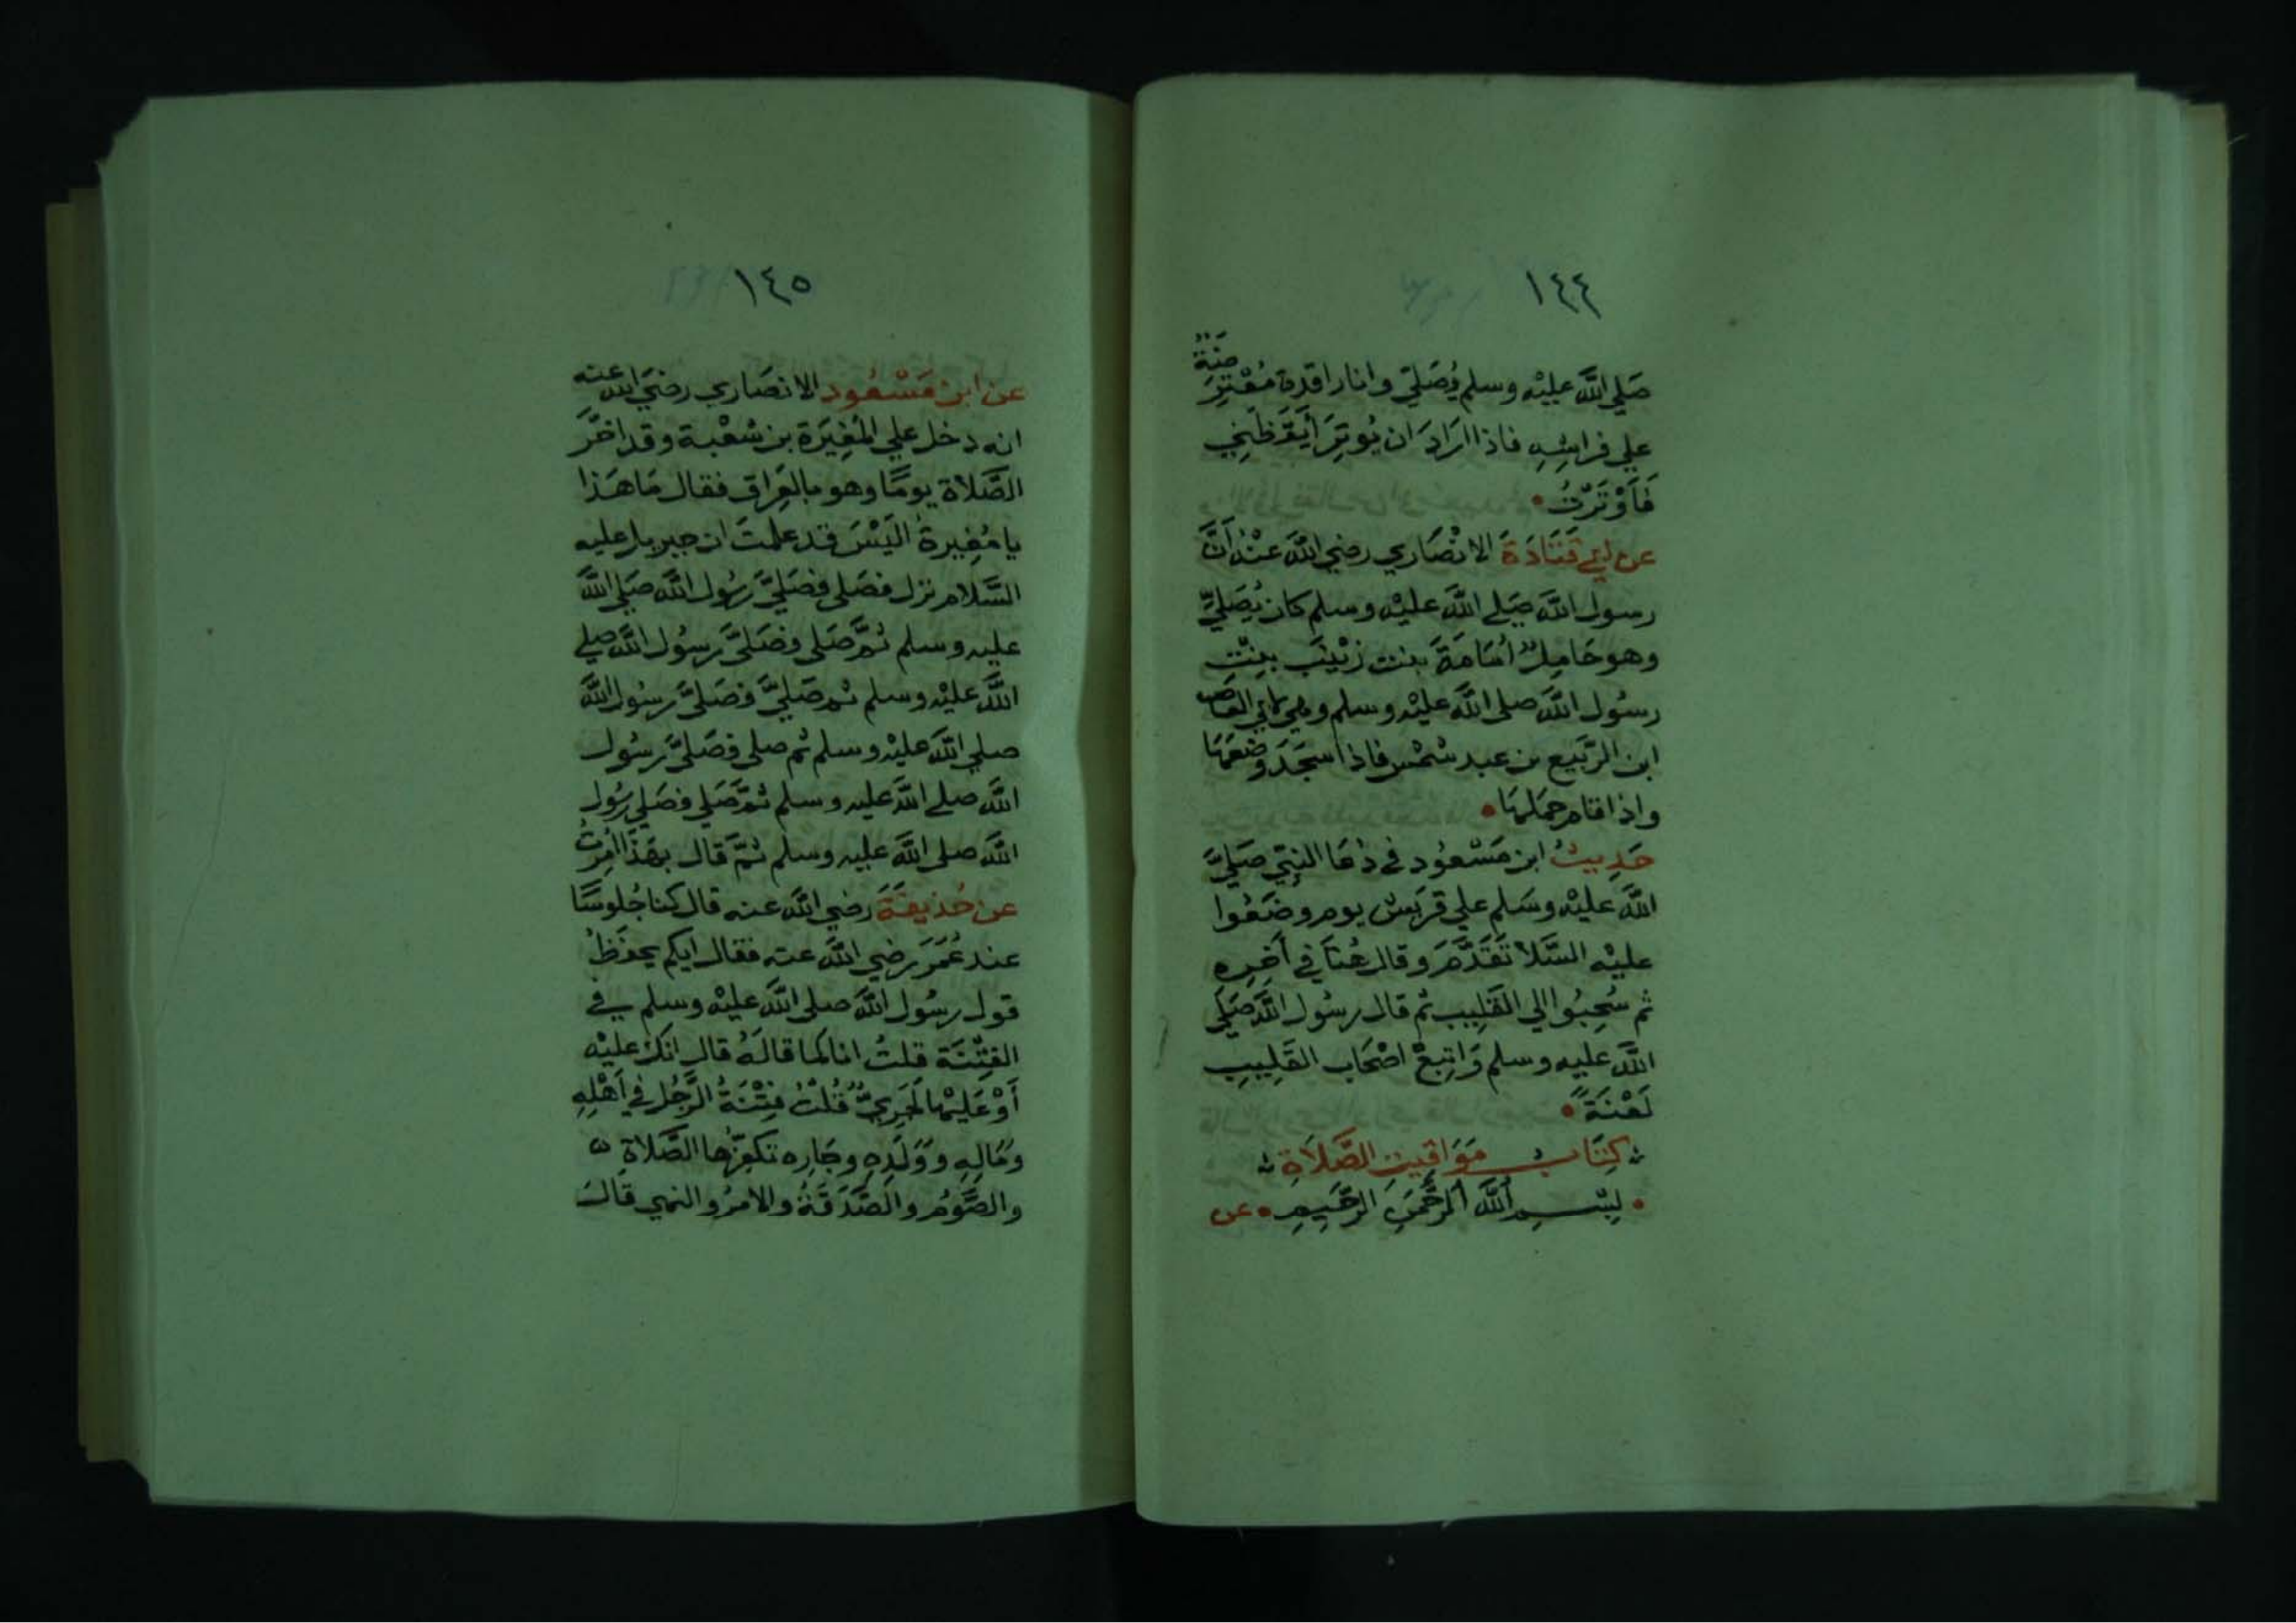 ١٤٤
صَلي اللَّه عليْه وسلم يُصَليّ وانا راقدة مُعْتَرِضَةٌ
علي فراشِهِ فاذا ارَادَ ان يُوتِرَ أيْقَظَنِي
فَأَوْتَرْتُ •
عن ابي قَتَادَةَ الانْصَاري رضي اللَّه عَنْهُ أنَّ
رسول اللَّه صَلي اللَّه عليْه وسلم كان يُصَليِّ
وهو حَامِلٌ أمَامَةَ بنت زيْنَبَ بِنْتِ
رسُول اللَّه صلي اللَّه عليْه وسلم ولابي العَاص
ابن الرَّبيع بن عبد شمْس فاذا سَجَدَ وضَعَهَا
واذا قام حَمَلَهَا •
حَدِيثُ ابن مَسْعُود في دُعَا النبي صَليَّ
اللَّه عليْه وسَلم علي قريْش يوم وضَعُوا
عليْه السَّلا تَقَدَّمَ وقال هُنَا في آخِرِهِ
ثم سُحِبُوا الي القَلِيب ثم قال رسُول اللَّه صَلي
اللَّه عليه وسلم وَاتبعَ اصْحَاب القَلِيبِ
لَعْنَةً •
كِتَابُ مَوَاقيتِ الصَّلاَةِ
• بِسْمِ اللَّه الرَّحْمَنِ الرَّحِيمِ • عن
١٤٥
عن ابن مَسْعُود الانصَاري رضيَ اللَّه عنه
انه دخل علي المُغِيَرة بن شعْبة وقد اخَّرَ
الصَّلاة يومًا وهو بالعِرَاق فقال مَا هَذا
يا مُغِيرة الَيْسَ قد علمتَ ان جبريل عليه
السَّلام نزل فصَلي فصَليَّ رسُول اللَّه صَلي اللَّه
عليه وسلم ثمَّ صَلي فصَليَّ رسُول اللَّه صلي
اللَّه عليْه وسلم ثم صَليَّ فصَليَّ رسُول اللَّه
صلي اللَّه عليْه وسلم ثم صلي فصَليَّ رسُول
اللَّه صلي اللَّه عليه وسلم ثمَّ صَلي فصَلي رسُول
اللَّه صلي اللَّه عليه وسلم ثمَّ قال بهَذا أُمِرْتُ
عن حُذيفَةَ رضي اللَّه عنه قال كنا جُلوسًا
عند عُمَرَ رضي اللَّه عنه فقال ايكم يحفَظُ
قول رسُول اللَّه صلي اللَّه عليْه وسلم في
الفِتْنَة قلتُ انا كما قالَهُ قال انك عليْه
أَوْ عَليْهَا لَجَرِيٌّ قُلْتُ فِتْنَةُ الرَّجُل في أَهْلِهِ
ومَالِهِ ووَلَدِهِ وجَارِهِ تكفِّرُها الصَّلاةُ
والصَّوْمُ والصَّدَقَةُ والامرُ والنهي قَالَ